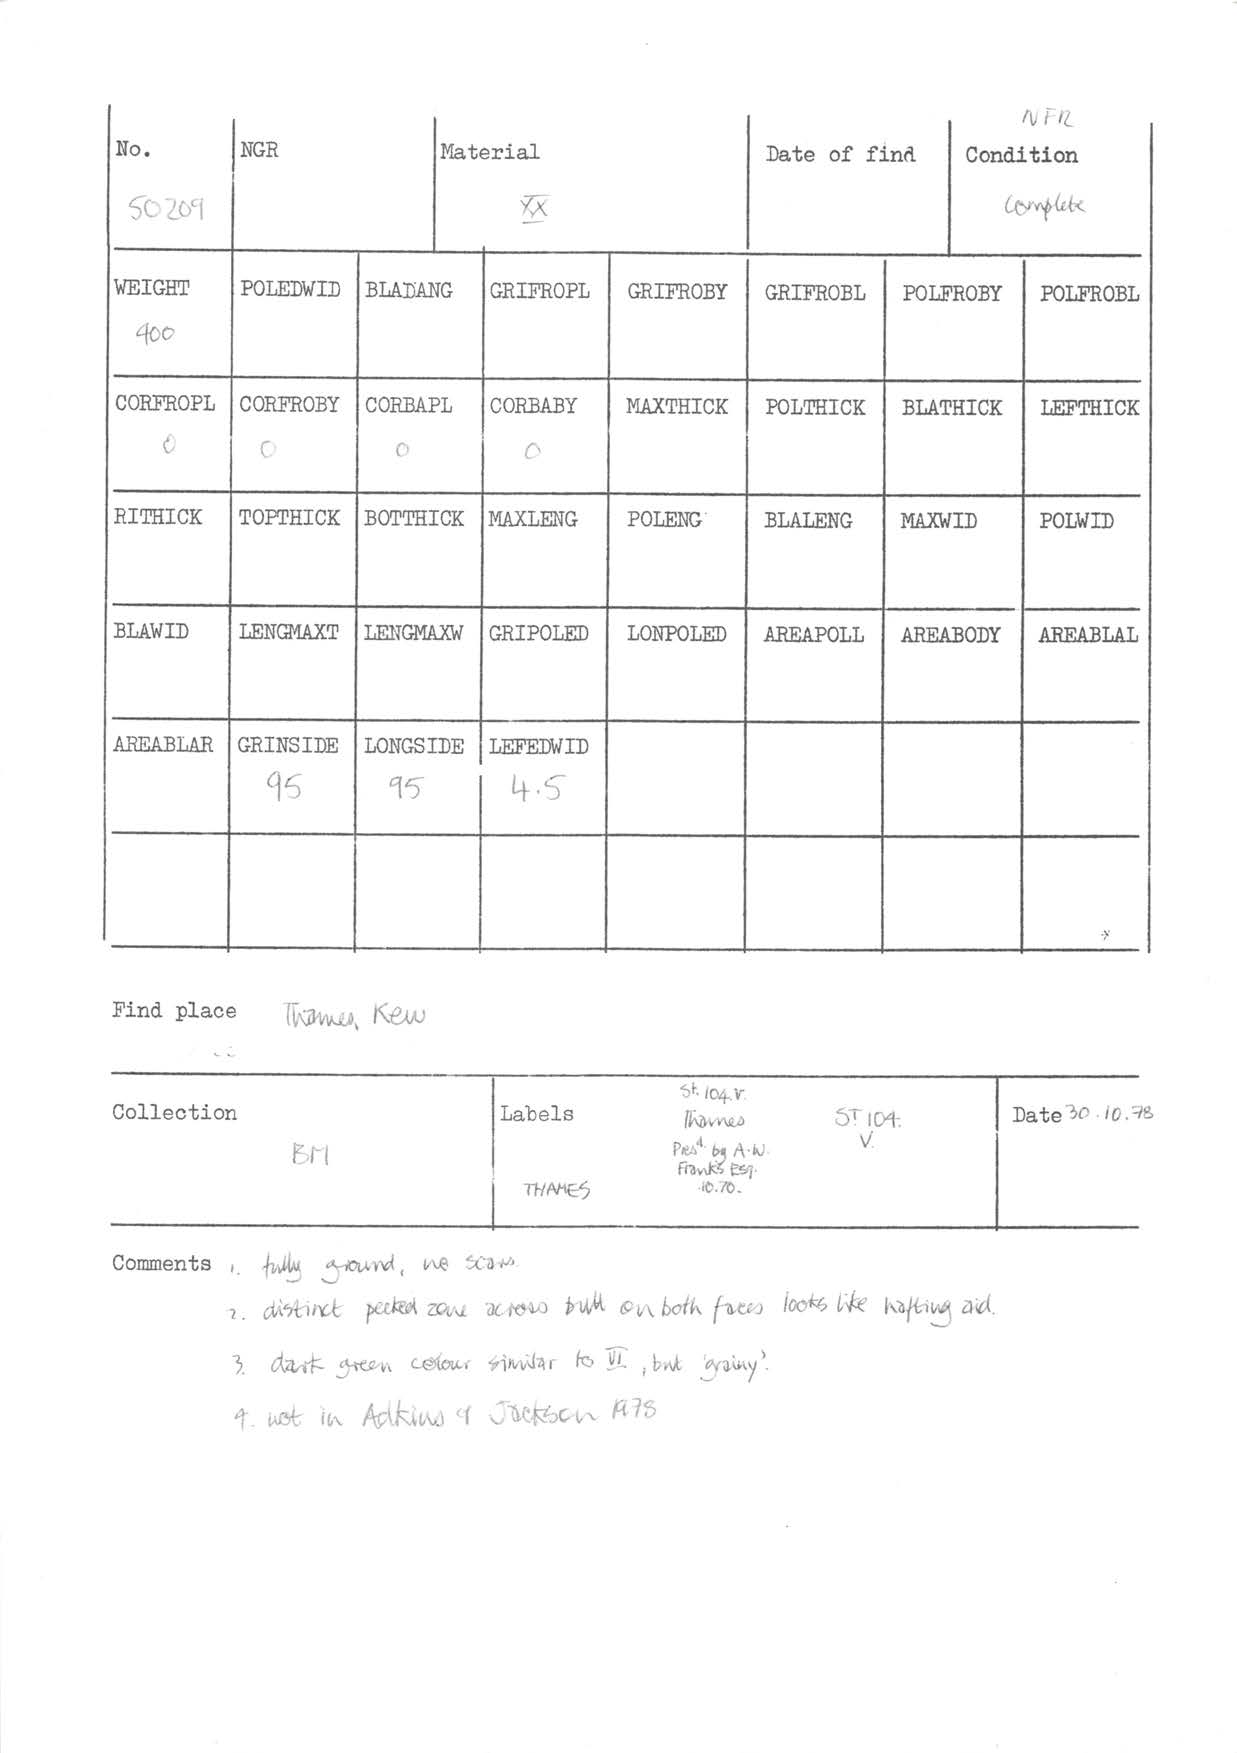 NFR
No. NGR Material Date of find Condition
50209 XX Complete
WEIGHT POLEDWID BLADANG GRIFROPL GRIFROBY GRIFROBL POLFROBY POLFROBL
400
CORFROPL CORFROBY CORBAPL CORBABY MAXTHICK POLTHICK BLATHICK LEFTHICK
0 0 0 0
RITHICK TOPTHICK BOTTHICK MAXLENG POLENG BLALENG MAXWID POLWID
BLAWID LENGMAXT LENGMAXW GRIPOLED LONPOLED AREAPOLL AREABODY AREABLAL
AREABLAR GRINSIDE LONGSIDE LEFEDWID
95 95 4.5
Find place Thames, Kew
Collection
BM
Labels
THAMES
St. 104.V.
Thames
Presd. by A.W.
Franks Esq.
10.70.
ST 104.
V.
Date 30.10.78
Comments 1. fully ground, no scars.
2. distinct pecked zone across butt on both faces looks like hafting aid.
3. dark green colour similar to VI, but 'grainy'.
4. not in Adkins & Jackson 1978